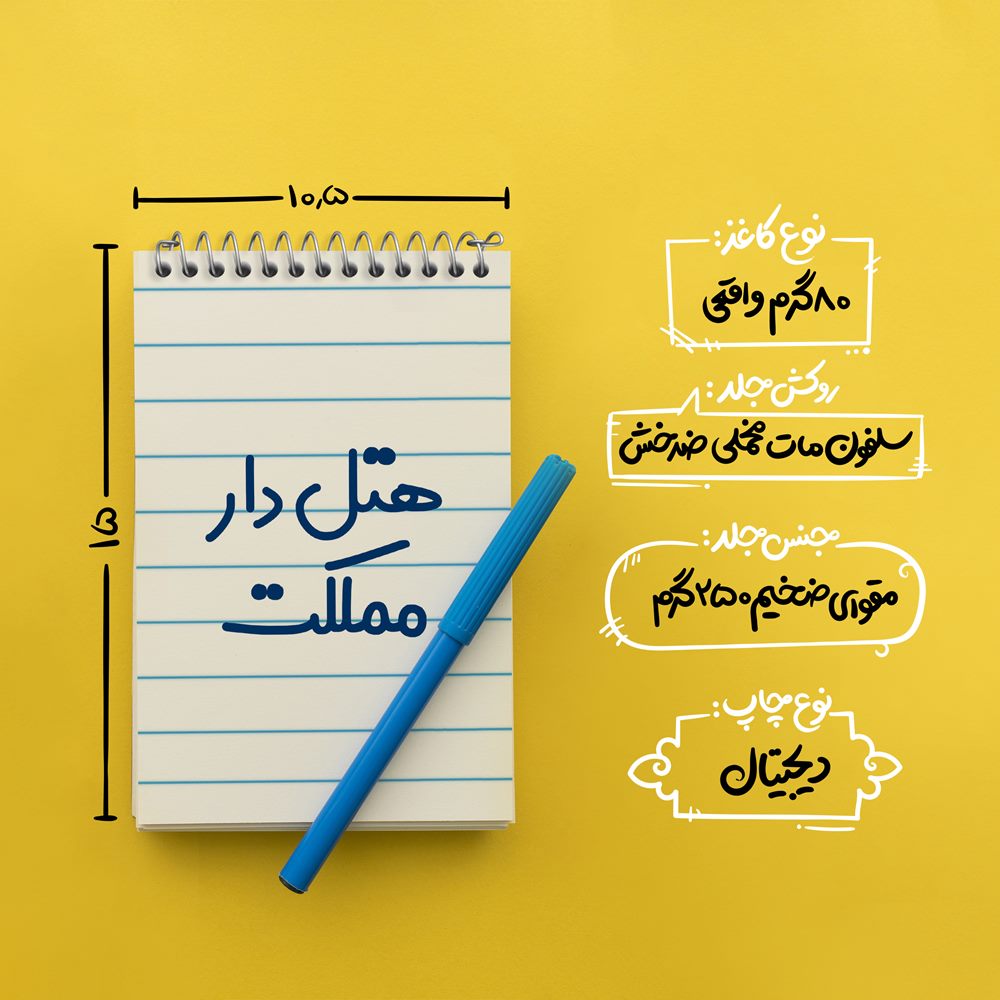 ۱۰,۵
۱۵
هتل دار
مملکت
نوع کاغذ:
۸۰گرم واقعی
روکش جلد:
سلفون مات مخملی ضدخش
جنس جلد:
مقوای ضخیم ۲۵۰گرم
نوع چاپ:
دیجیتال